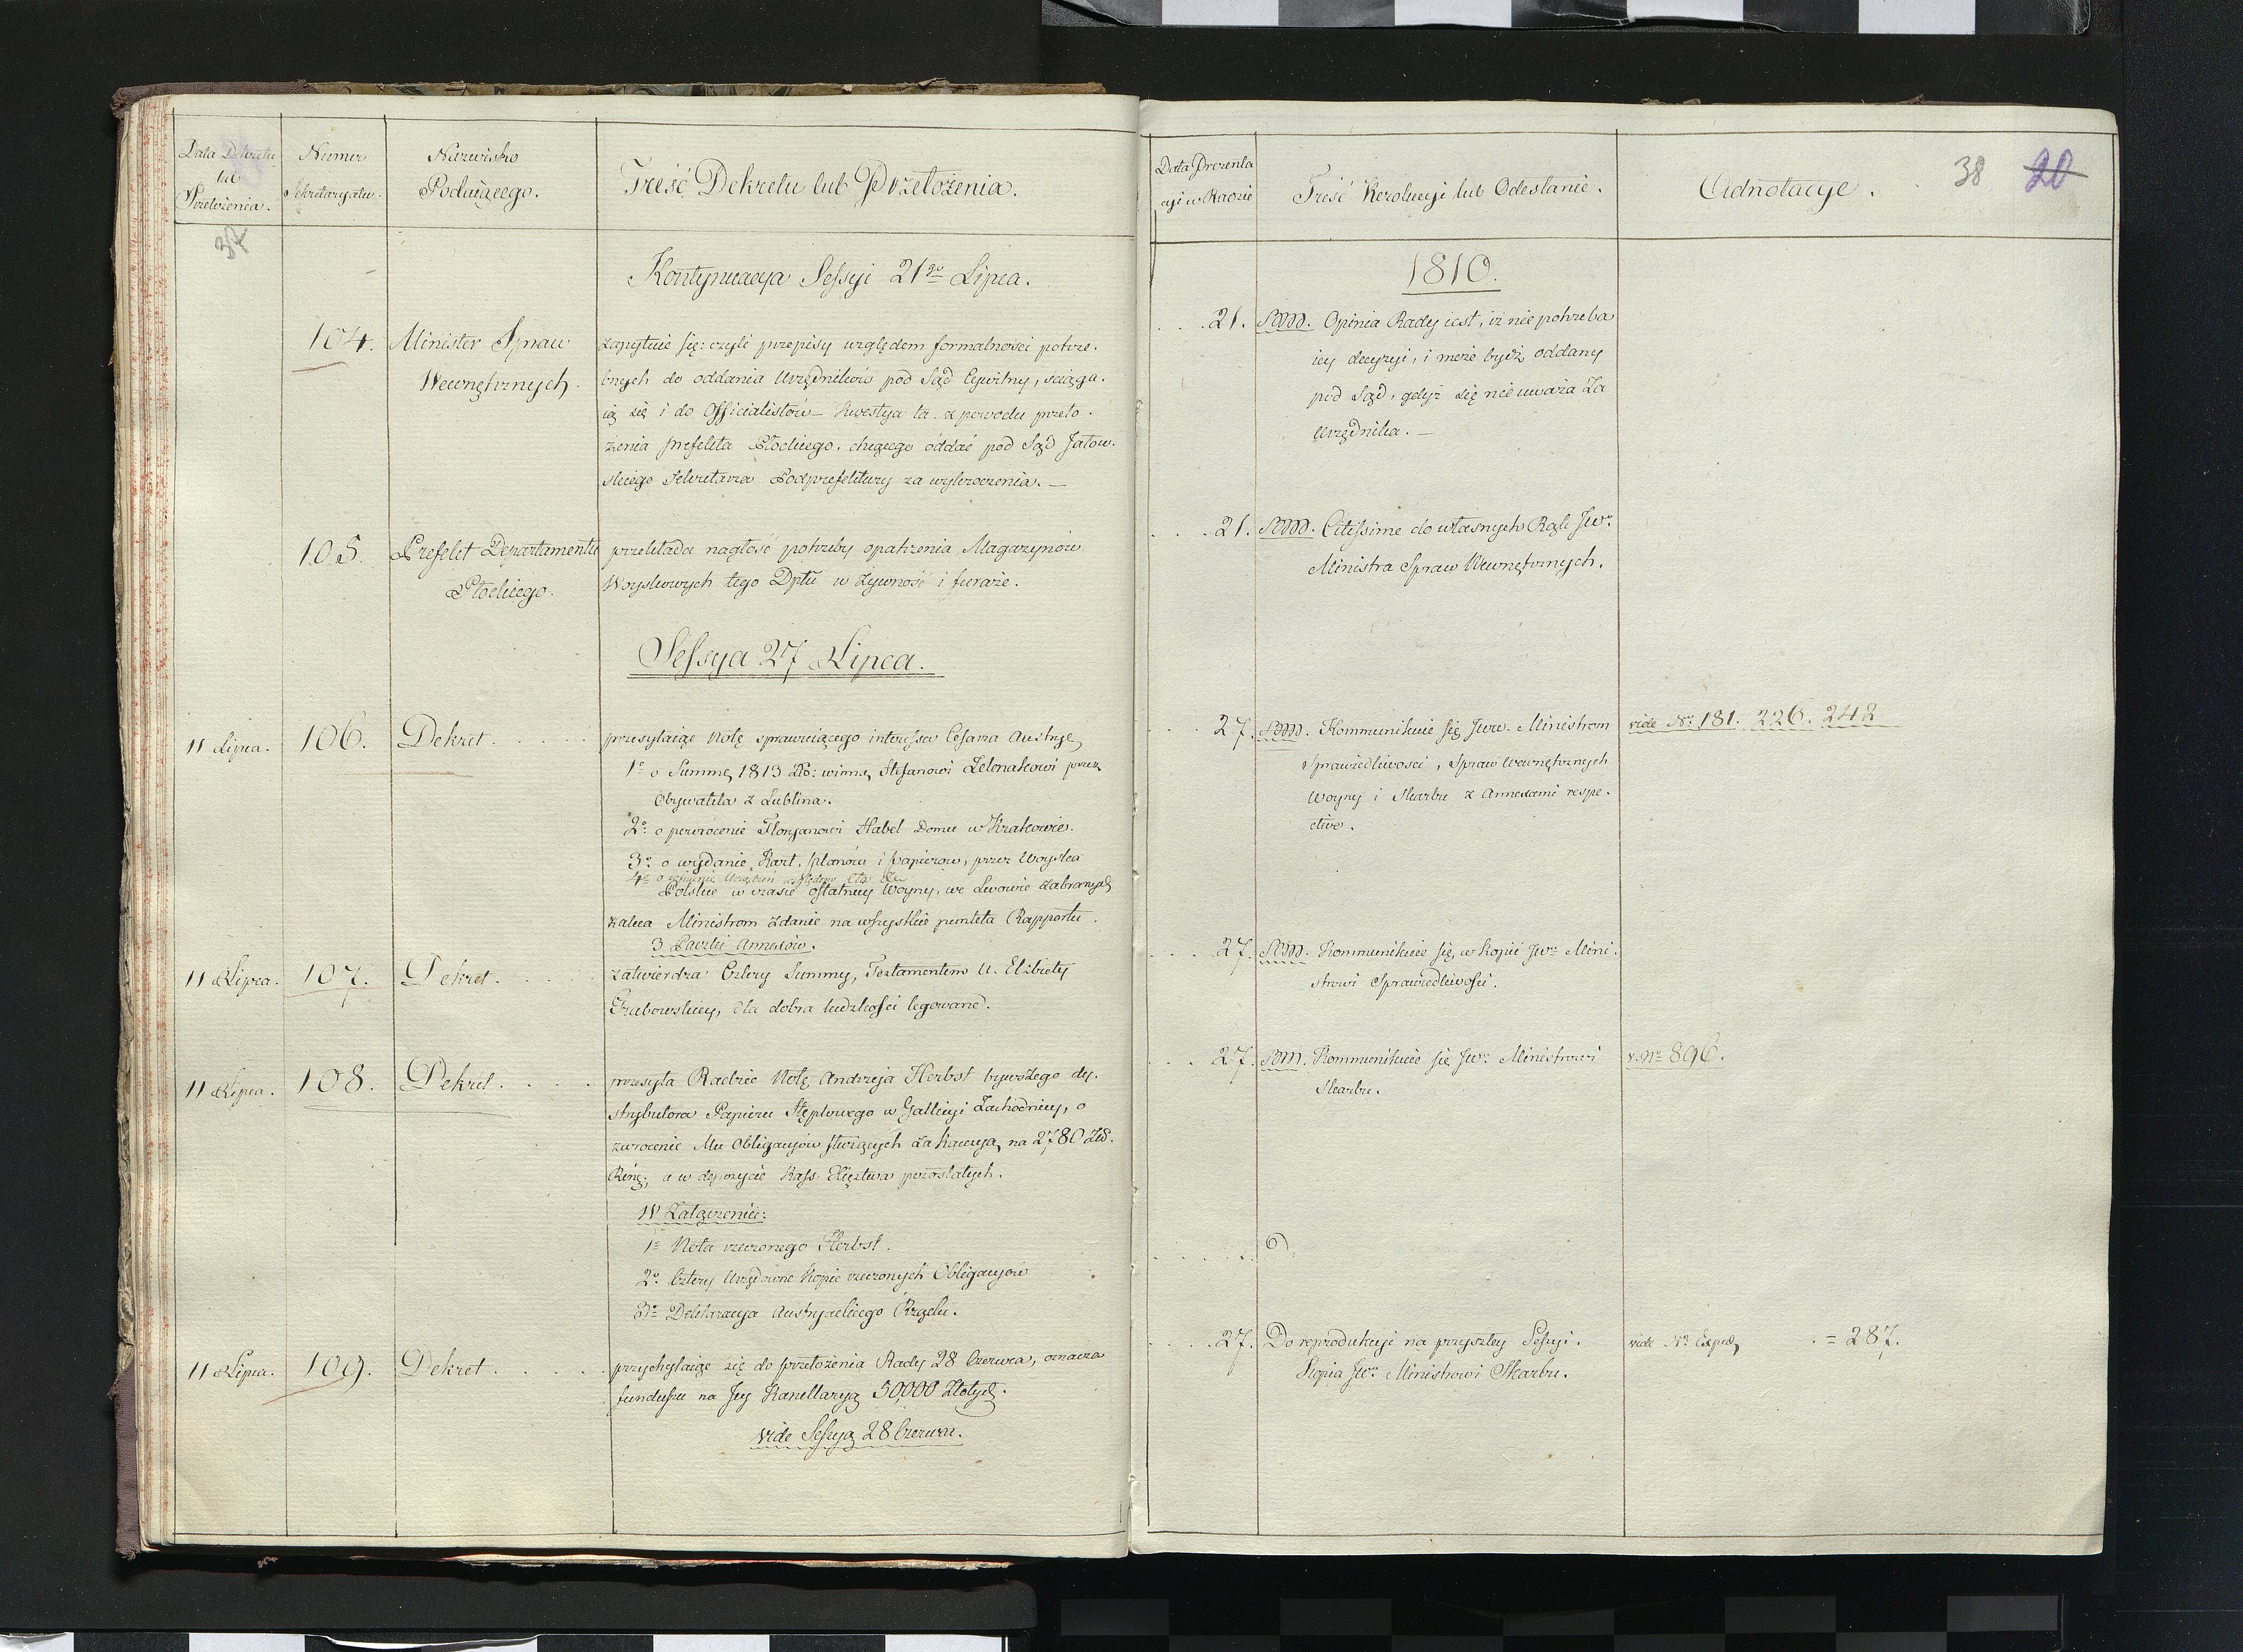 Data Dekretu
lub
Przełożenia.
Numer
Sekretaryatu.
Nazwisko
Podaiącego.
Treść Dekretu lub Przełożenia.
Kontynuacya Sessyi 21go Lipca.
104.
Minister Spraw
Wewnętrznych.
zapytuie się: czyli przepisy względem formalności potrze-
bnych do oddania Urzędników pod Sąd Cywilny, ściąga-
ią się i do Officialistów – Kwestya ta z powodu przeło-
żenia Prefekta Płockiego, chcącego oddać pod Sąd Jałow-
skiego Sekretarza Podprefektury za wykroczenia. –
105.
Prefekt Departamentu
Płockiego.
przekłada nagłość potrzeby opatrzenia Magazynów
Woyskowych tego Dptu w żywność i furaże.
Sessya 27 Lipca.
11 Lipca.
106.
Dekret.
przesyłaiąc Notę sprawuiącego interessa Cesarza Austryi
1o o Summę 1813 winną Stefanowi Zelenakowi przez
Obywatela z Lublina.
2o o powrócenie Floryanowi Habel Domu w Krakowie.
3o o wydanie Kart, planów i papierów, przez Woyska
4o o
Polskie w czasie ostatniey Woyny, we Lwowie zabranych
zaleca Ministrom zdanie na wszystkie punkta Rapportu.
3 Paczki Annexów.
11 Lipca.
107.
Dekret.
zatwierdza Cztery Summy, Testamentem U. Elżbiety
Grabowskiey, dla dobra ludzkości legowane.
11 Lipca.
108.
Dekret.
przesyła Radzie Notę Andrzeja Herbst bywszego dy-
strybutora Papieru Stęplowego w Gallicyi Zachodniey, o
zwrocenie Mu Obligacyów służących za Kaucyą na 2780
a w depozycie Kass Xięztwa pozostałych.
W Załączeniu:
1o Nota rzeczonego Herbst.
2o Cztery Urzędowne Kopie rzeczonych Obligacyów
3o Deklaracya Austryackiego Rządu.
11 Lipca.
109.
Dekret.
przychylaiąc się do przełożenia Rady 28 Czerwca, oznacza
funduszu na Jey Kancellaryą 50,000 Złotych.
vide Sessyą 28 Czerwca.
Data Prezenta
cyi w Radzie
Treść Rezolucyi lub Odesłanie.
Adnotacye.
38
20
1810.
21.
Opinia Rady iest, iż nie potrzeba
iey decyzyi, i może bydź oddany
pod Sąd, gdyż się nie uważa za
Urzędnika. –
21.
Citissime do własnych Rąk JWo
Ministra Spraw Wewnętrznych.
27.
Kommunikuie się JWW. Ministrom
Sprawiedliwości, Spraw Wewnętrznych
Woyny i Skarbu z Annexami respe-
ctive.
vide No 181. 226. 242
27.
Kommunikuie się, w kopii JWu Mini-
strowi Sprawiedliwości.
27.
Kommunikuie się JWu Ministrowi
Skarbu.
v. No 896.
27.
Do reprodukcyi na przyszłey Sessyi.
Kopia JWu Ministrowi Skarbu.
vide No Exped. = 287.